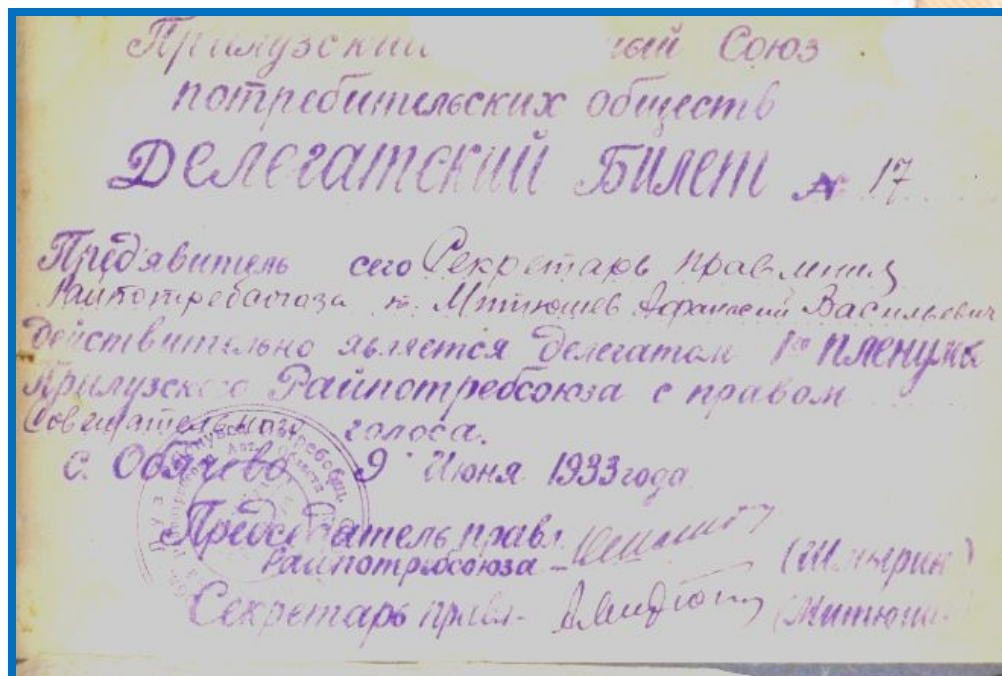 Прилузский ный Союз
потребительских обществ
Делегатский Билет № 17
Предявитель сего Секретарь правления
Райпотребсоюза т. Митюшев Афанасий Васильевич
Действительно является Делегатом 1го пленума
Прилузского Райпотребсоюза с правом
Совещательного голоса.
с. Объячево 9 Июня 1933 года
Председатель правл.
Райпотребсоюза –
Секретарь правл.